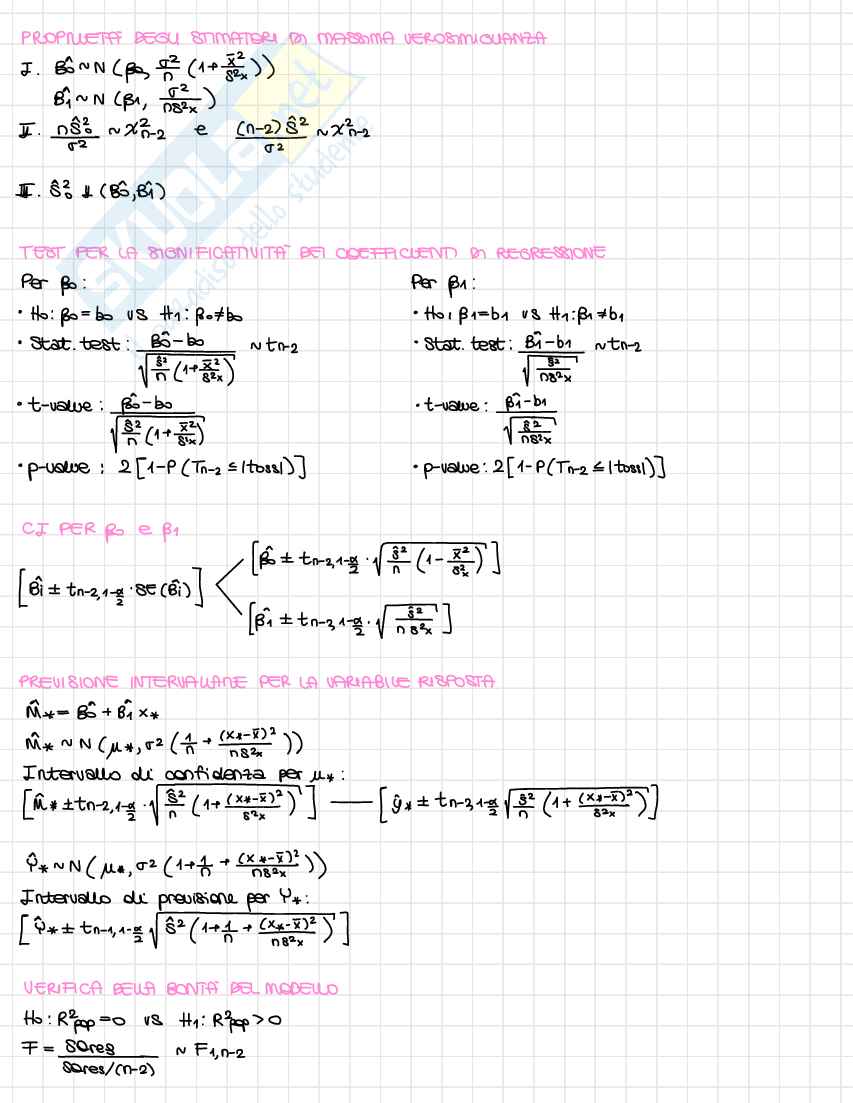 PROPRIETÀ DEGLI STIMATORI DI MASSIMA VEROSIMIGLIANZA
I. B̂0 ~ N (β0, σ²/n (1+ x̄²/s²x))
B̂1 ~ N (β1, σ²/ns²x)
II. nŜ0²/σ² ~ χ²n-2 e (n-2)Ŝ²/σ² ~ χ²n-2
III. Ŝ0² ⫫ (B̂0, B̂1)
TEST PER LA SIGNIFICATIVITÀ DEI COEFFICIENTI DI REGRESSIONE
Per β0:
• H0: β0 = b0 vs H1: β0 ≠ b0
• Stat. test: B̂0 - b0 / √(ŝ²/n (1+ x̄²/s²x)) ~ tn-2
• t-value: β̂0 - b0 / √(ŝ²/n (1+ x̄²/s²x))
• p-value: 2[1-P(Tn-2 ≤ |toss|)]
Per β1:
• H0: β1 = b1 vs H1: β1 ≠ b1
• Stat. test: B̂1 - b1 / √(ŝ²/ns²x) ~ tn-2
• t-value: β̂1 - b1 / √(ŝ²/ns²x)
• p-value: 2[1-P(Tn-2 ≤ |toss|)]
CI PER β0 e β1
[B̂i ± tn-2,1-α/2 · SE(B̂i)]
[β̂0 ± tn-2,1-α/2 · √(ŝ²/n (1- x̄²/s²x))]
[β̂1 ± tn-2,1-α/2 · √(ŝ²/n s²x)]
PREVISIONE INTERVALLARE PER LA VARIABILE RISPOSTA
M̂* = B̂0 + B̂1 x*
M̂* ~ N (μ*, σ² (1/n + (x*-x̄)²/ns²x))
Intervallo di confidenza per μ*:
[M̂* ± tn-2,1-α/2 · √(Ŝ²/n (1+ (x*-x̄)²/s²x))] — [ŷ* ± tn-2,1-α/2 √(ŝ²/n (1+ (x*-x̄)²/s²x))]
Ŷ* ~ N (μ*, σ² (1+ 1/n + (x*-x̄)²/ns²x))
Intervallo di previsione per Y*:
[Ŷ* ± tn-1,1-α/2 √(Ŝ² (1+ 1/n + (x*-x̄)²/ns²x))]
VERIFICA DELLA BONTÀ DEL MODELLO
H0: R²pop = 0 vs H1: R²pop > 0
F = SQres / SQres/(n-2) ~ F1,n-2
SKUOLA.net